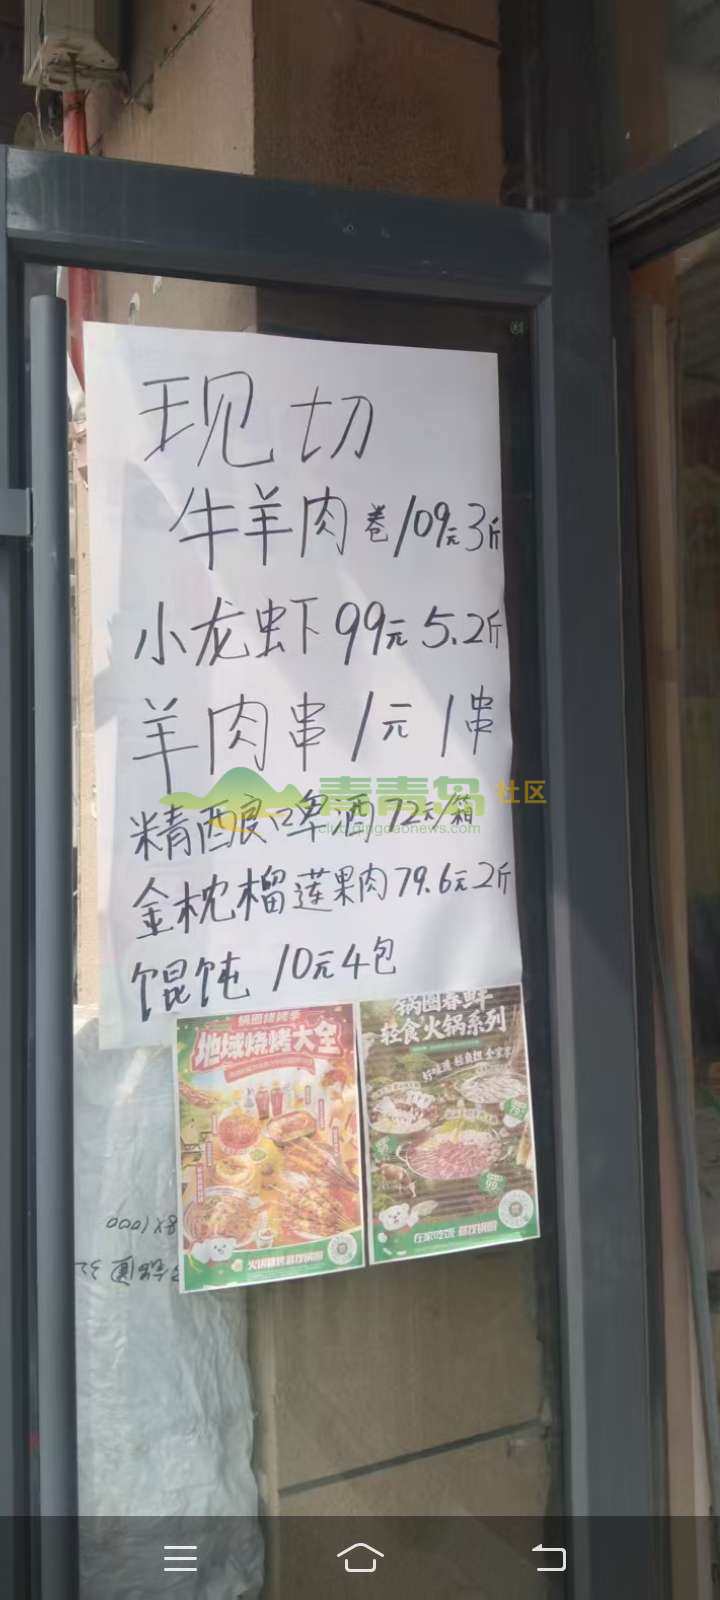 现切
牛羊肉卷109元3斤
小龙虾99元5.2斤
羊肉串1元1串
青青岛社区
club.qingdaonews.com
精酿啤酒72元/箱
金枕榴莲果肉79.6元2斤
馄饨 10元4包
锅圈烧烤季
地域烧烤大全
锅圈春鲜
轻食火锅系列
好味道 轻负担 全家享
8X1000